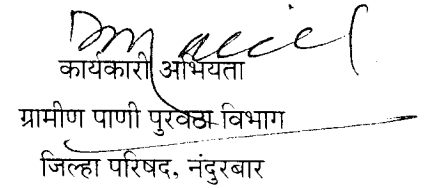 कार्यकारी अभियता
ग्रामीण पाणी पुरवठा विभाग
जिल्हा परिषद, नंदुरबार